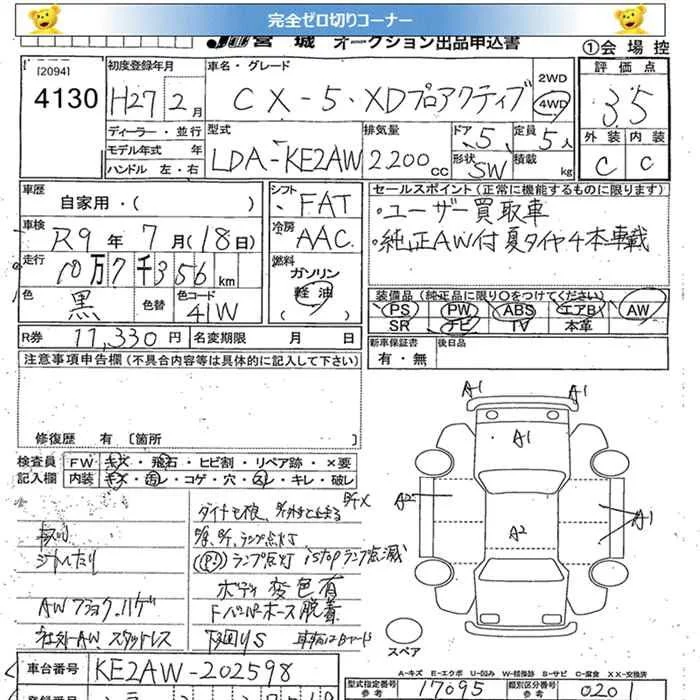 完全ゼロ切りコーナー
JU宮城 オークション出品申込書
①会場控
[2094]
4130
初度登録年月
H27年2月
車名・グレード
CX-5・XDプロアクティブ
2WD
4WD
評価点
3.5
ディーラー・並行
モデル年式 年
ハンドル 左・右
型式
LDA-KE2AW
排気量
2200cc
ドア
5
形状
SW
定員
5人
積載
kg
外装 内装
C C
車歴
自家用・( )
シフト
FAT
セールスポイント(正常に機能するものに限ります)
・ユーザー買取車
・純正AW付夏タイヤ4本車載
車検
R9年7月(18日)
冷房
AAC
走行
10万7千356km
燃料
ガソリン
軽油
色
黒
色替
色コード
41W
装備品(純正品に限り○をつけてください)
PS PW ABS エアB AW
SR ナビ TV 本革
R券 11,330円
名変期限 月 日
新車保証書
有・無
後日品
注意事項申告欄(不具合内容等は具体的に記入して下さい)
修復歴 有 [箇所 ]
検査員
記入欄
FW キズ・飛石・ヒビ割・リペア跡・×要
内装 キズ・汚レ・コゲ・穴・スレ・キレ・破レ
ランプ点灯 istopランプ点滅
ボディ変色有
シートへたり
Fバンパーホース脱着
AWブラック・ハゲ
社外AWスタッドレス
下廻りS
A1
A1
A1
A2
A1
A2
スペア
A-キズ E-エクボ U-凹み W-補修跡 S-サビ C-腐食 XX-交換済
車台番号
KE2AW-202598
型式指定番号
参考
17095
類別区分番号
参考
020
登録番号